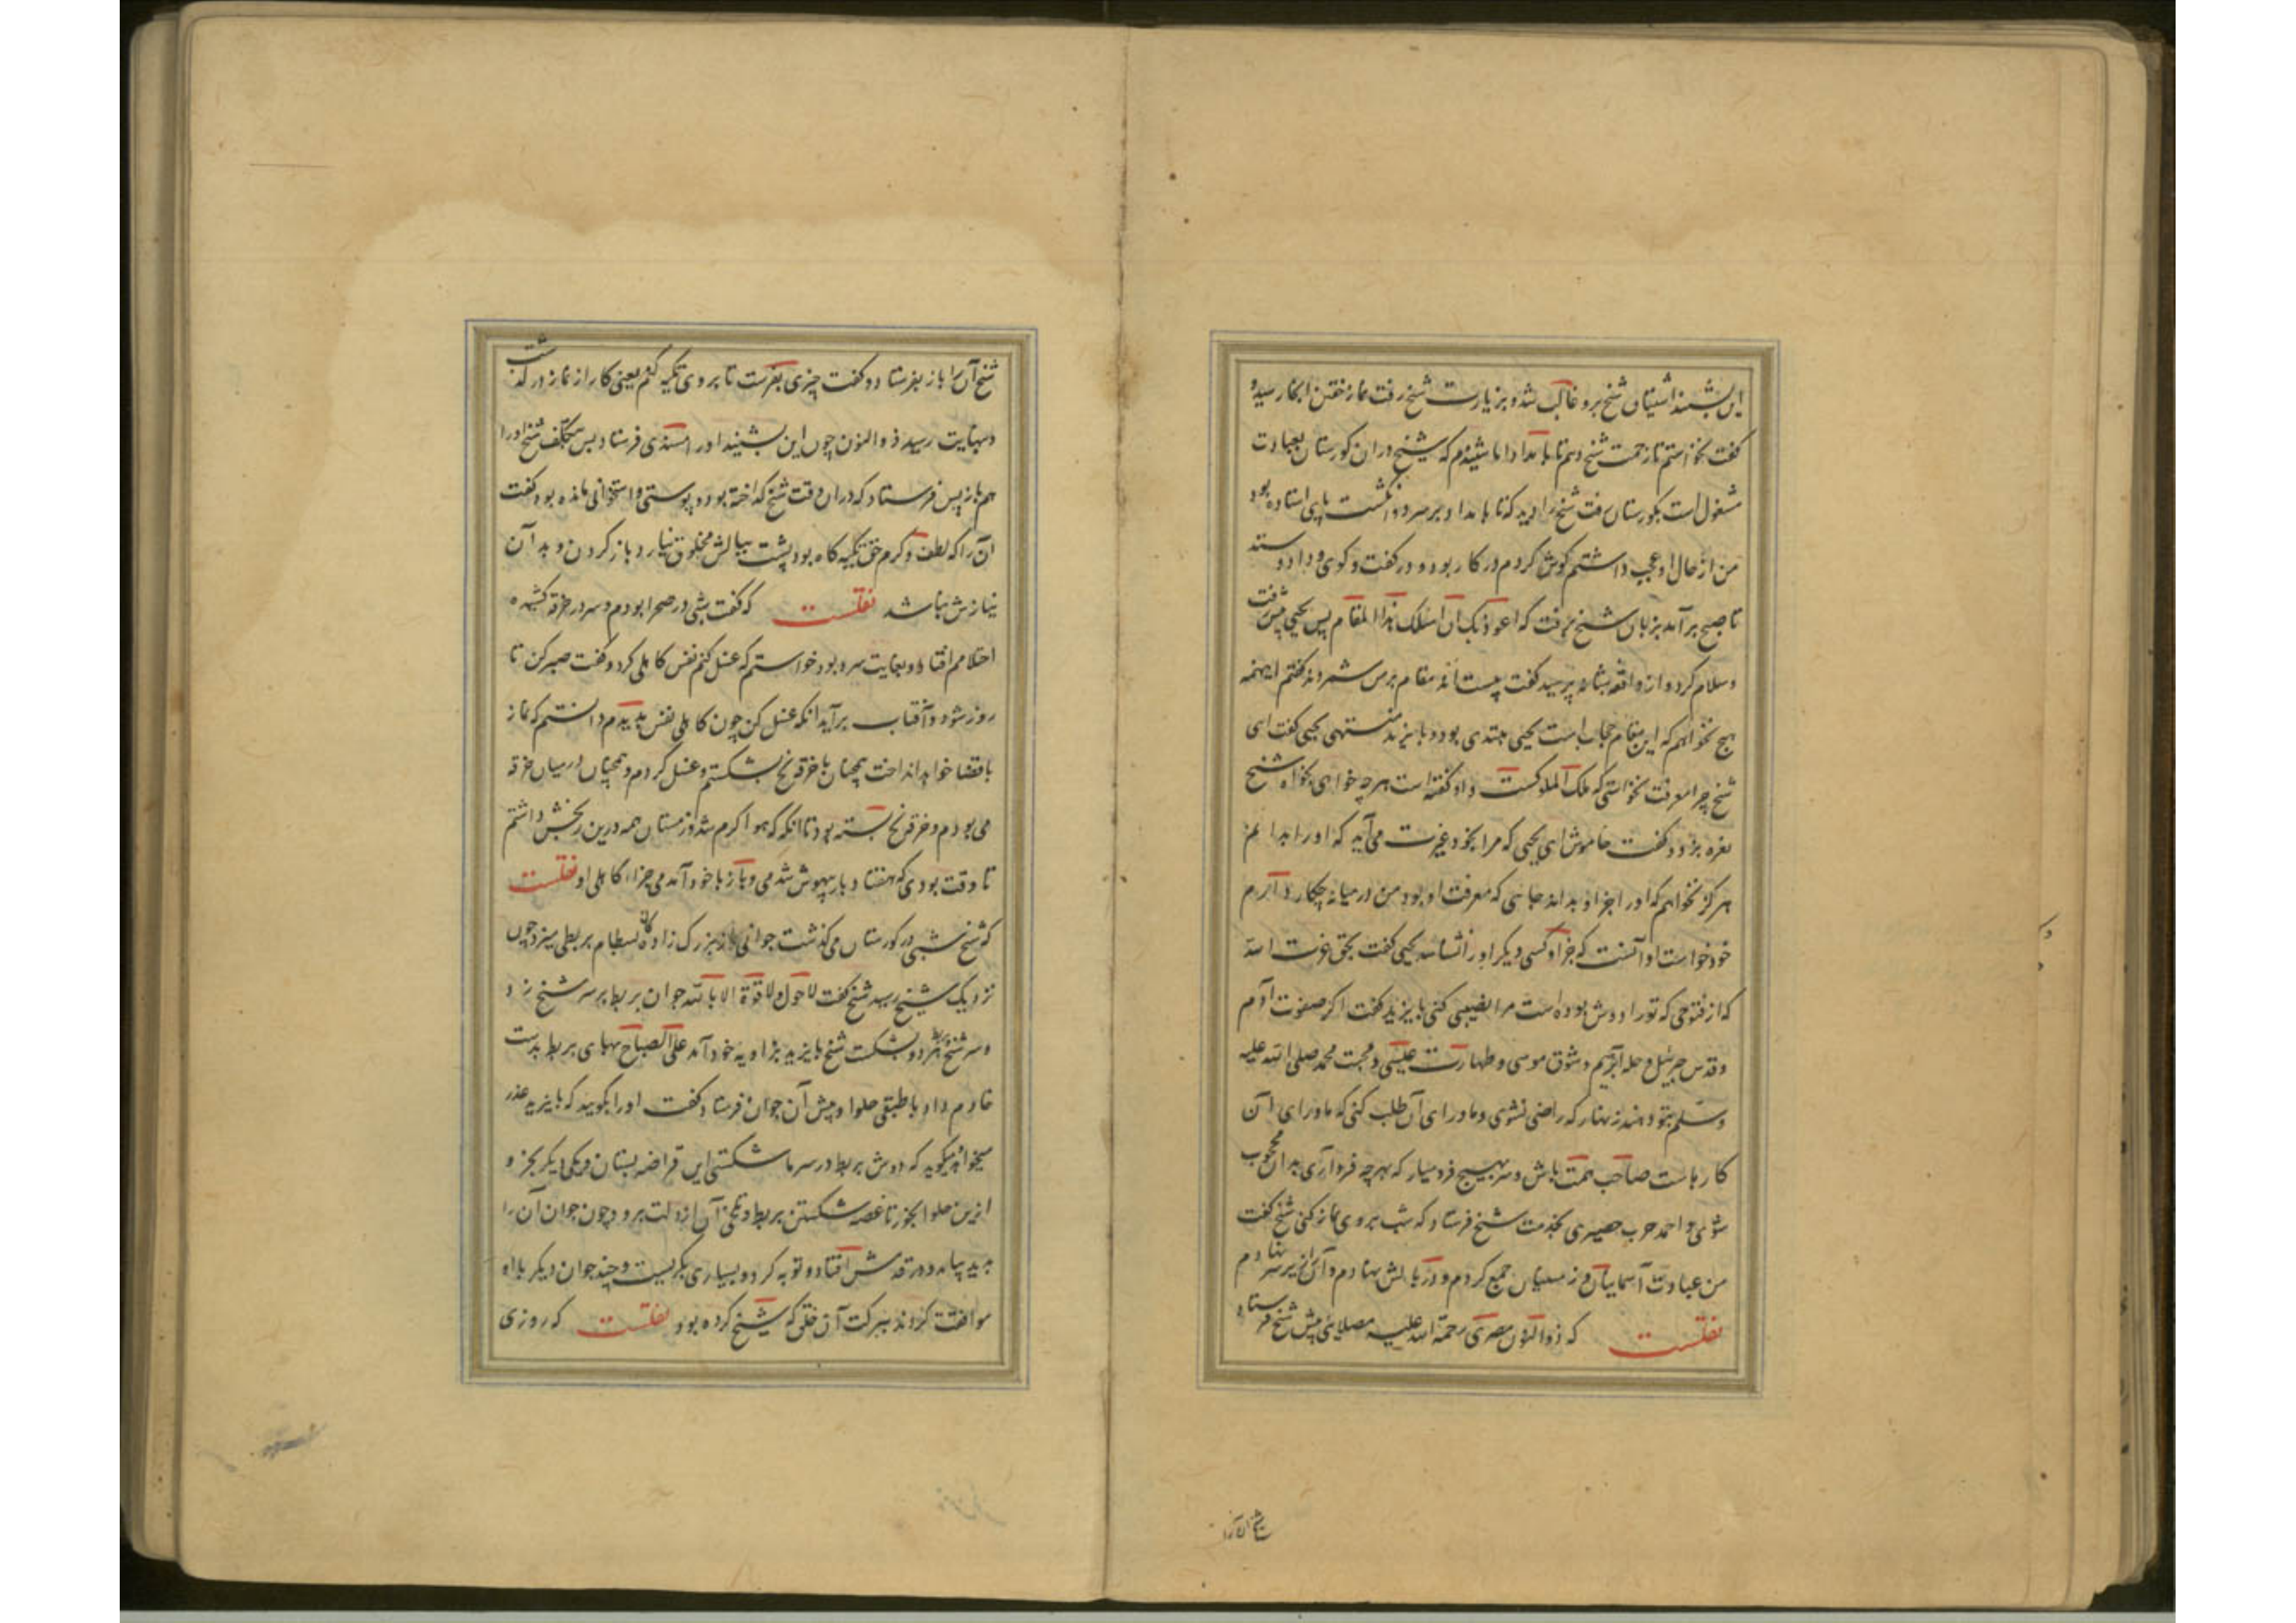 این بشنید اشتیاق شیخ برو غالب شد و بزیارت شیخ رفت نماز خفتن آنجا رسید و
گفت نخواستم تا زحمت شیخ دهم تا بامداد اما شنیدم که شیخ در آن کورستان بعبادت
مشغول است بکورستان رفت شیخ را دید که تا بامداد بر سر دو انکشت پای استاده بود
من از حال او عجب داشتم کوش کردم در کار بود و در کفت و کوی و داد و ستد
تا صبح برآمد بر زبان شیخ برفت که اعوذ بک ان اسئلک هذا المقام پس یحیی پیش رفت
و سلام کرد و از واقعه شبانه پرسید گفت بیست اند مقام برمن شمردند گفتم ازینهمه
هیچ نخواهم که این مقام حجاب است یحیی مبتدی بود و بایزید منتهی یحیی گفت ای
شیخ چرا معرفت نخواستی که ملک الملوکست و او گفته است هر چه خواهی بخواه شیخ
نعره بزد و گفت خاموش ای یحیی که مرا بخود غیرت می‌آید که او را بدانم
هرکز نخواهم که او را جز او بداند جایی که معرفت او بود من در میانه چکار دارم
خود خواست او آنست که جز او کسی دیکر او را نشناسد یحیی گفت بحق عزت الله
که از فتوحی که تو را دوش بوده است مرا نصیبی کنی بایزید گفت اکر صفوت آدم
و قدس جبرئیل و خله ابرهیم و شوق موسی و طهارت عیسی و محبت محمد صلی الله علیه
وسلم بتو دهند زنهار که راضی نشوی و ماورای آن طلب کنی که ماورای آن
کارهاست صاحب همت باش و سر بهیچ فرو میار که بهر چه فرو آری بدان محجوب
شوی و احمد حرب حصیری بخدمت شیخ فرستاد که شب بر وی نماز کنی شیخ گفت
من عبادت آسمانیان و زمینیان جمع کردم و در بالش نهادم و آن را زیر سر نهادم
نقلست که ذوالنون مصری رحمة الله علیه مصلایی پیش شیخ فرستاد
شیخ آن را
شیخ آن را باز بفرستاد و گفت چیزی بفرست تا بر وی تکیه کنم یعنی کار از نماز در گذشت
و بنهایت رسید ذوالنون چون این بشنید او را مسندی فرستاد بس متکلف شیخ او را
هم باز پس فرستاد که در آن وقت شیخ کداخته بود و پوستی و استخوانی مانده بود گفت
آن را که لطف و کرم حق تکیه کاه بود پشت ببالش مخلوق نیارد باز کردن و بدآن
نیازش نباشد نقلست که گفت شبی در صحرا بودم و سر در خرقه کشیده
احتلامم افتاد و بغایت سرد بود خواستم که غسل کنم نفس کاهلی کرد و گفت صبر کن تا
روز شود و آفتاب برآید آنکه غسل کن چون کاهلی نفس بدیدم دانستم که نماز
با قضا خواهد انداخت همچنان با خرقه یخ بشکستم و غسل کردم و همچنان در میان خرقه
می بودم و خرقه یخ بسته بود تا آنکه که هوا کرم شد و زمستان همه درین رنجش داشتم
تا وقت بودی که هفتاد بار بیهوش شدمی و باز با خود آمدمی جزاء کاهلی او نقلست
که شیخ شبی در کورستان می‌گذشت جوانی از بزرک زادکان بسطام بربطی میزد چون
نزدیک شیخ رسید شیخ گفت لا حول ولا قوة الا بالله جوان بربط بر سر شیخ زد
و سر شیخ و بربط هر دو بشکست شیخ بایزید بزاویه خود آمد علی الصباح بهای بربط بدست
خادم داد با طبقی حلوا و پیش آن جوان فرستاد و گفت او را بگویید که بایزید عذر
میخواهد و میگوید که دوش بربط در سر ما شکستی این قراضه بستان و یکی دیکر بخر و
ازین حلوا بخور تا غصه شکستن بربط و تلخی آن از دلت برود چون جوان آن را
بدید بیامد و در قدمش افتاد و توبه کرد و بسیاری بگریست و چند جوان دیکر با او
موافقت کردند ببرکت آن خلق که شیخ کرده بود نقلست که روزی